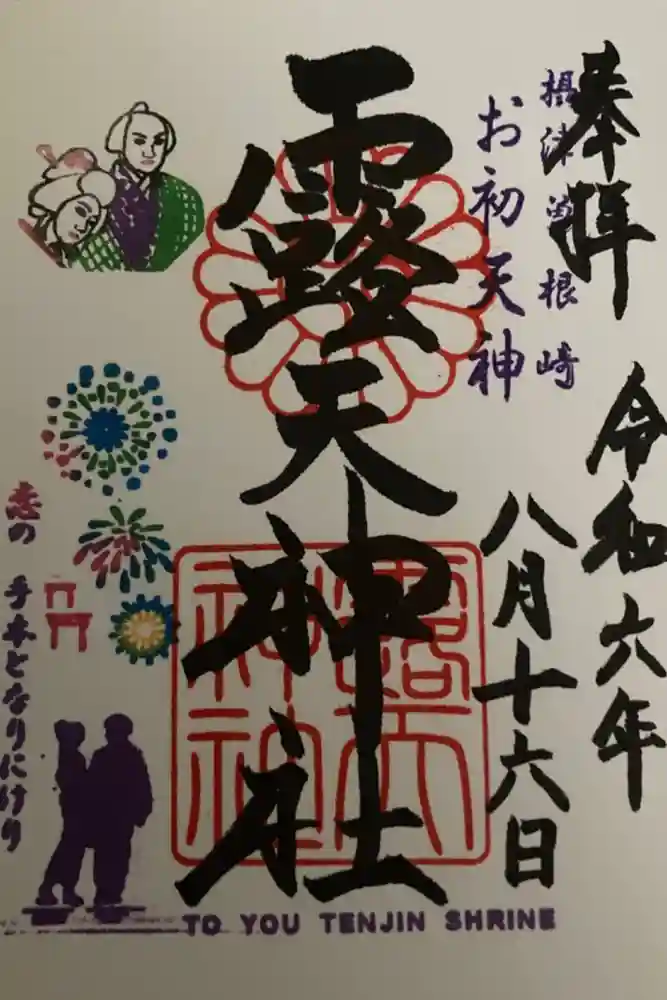 奉拝
令和六年
八月十六日
摂津曽根崎
お初天神
露天神社
露天
神社
恋の 手本となりにけり
TO YOU TENJIN SHRINE